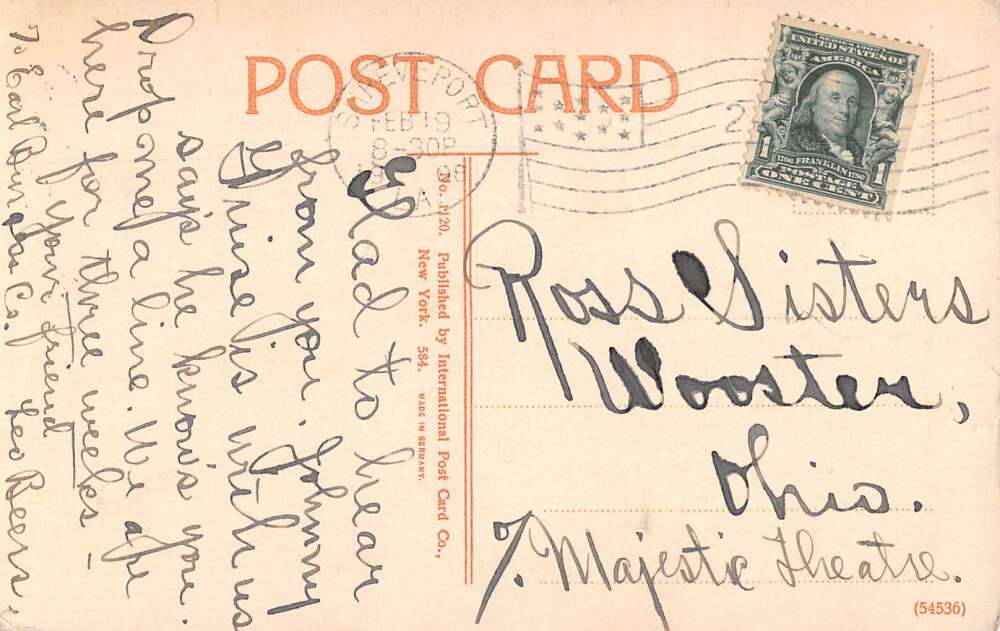 POST CARD
SHREVEPORT
FEB 19
8-30P
SERIES 1902
UNITED STATES OF
AMERICA
1706 FRANKLIN 1790
POSTAGE
1 ONE CENT 1
Glad to hear
from you. Johnny
is with us
says he know's you.
Drop me a line. We are
here for three weeks –
your friend
Leo Beers.
No. 1120. Published by International Post Card Co.,
New York. 584. MADE IN GERMANY.
Ross Sisters
Wooster,
Ohio.
℅. Majestic Theatre.
(54536)